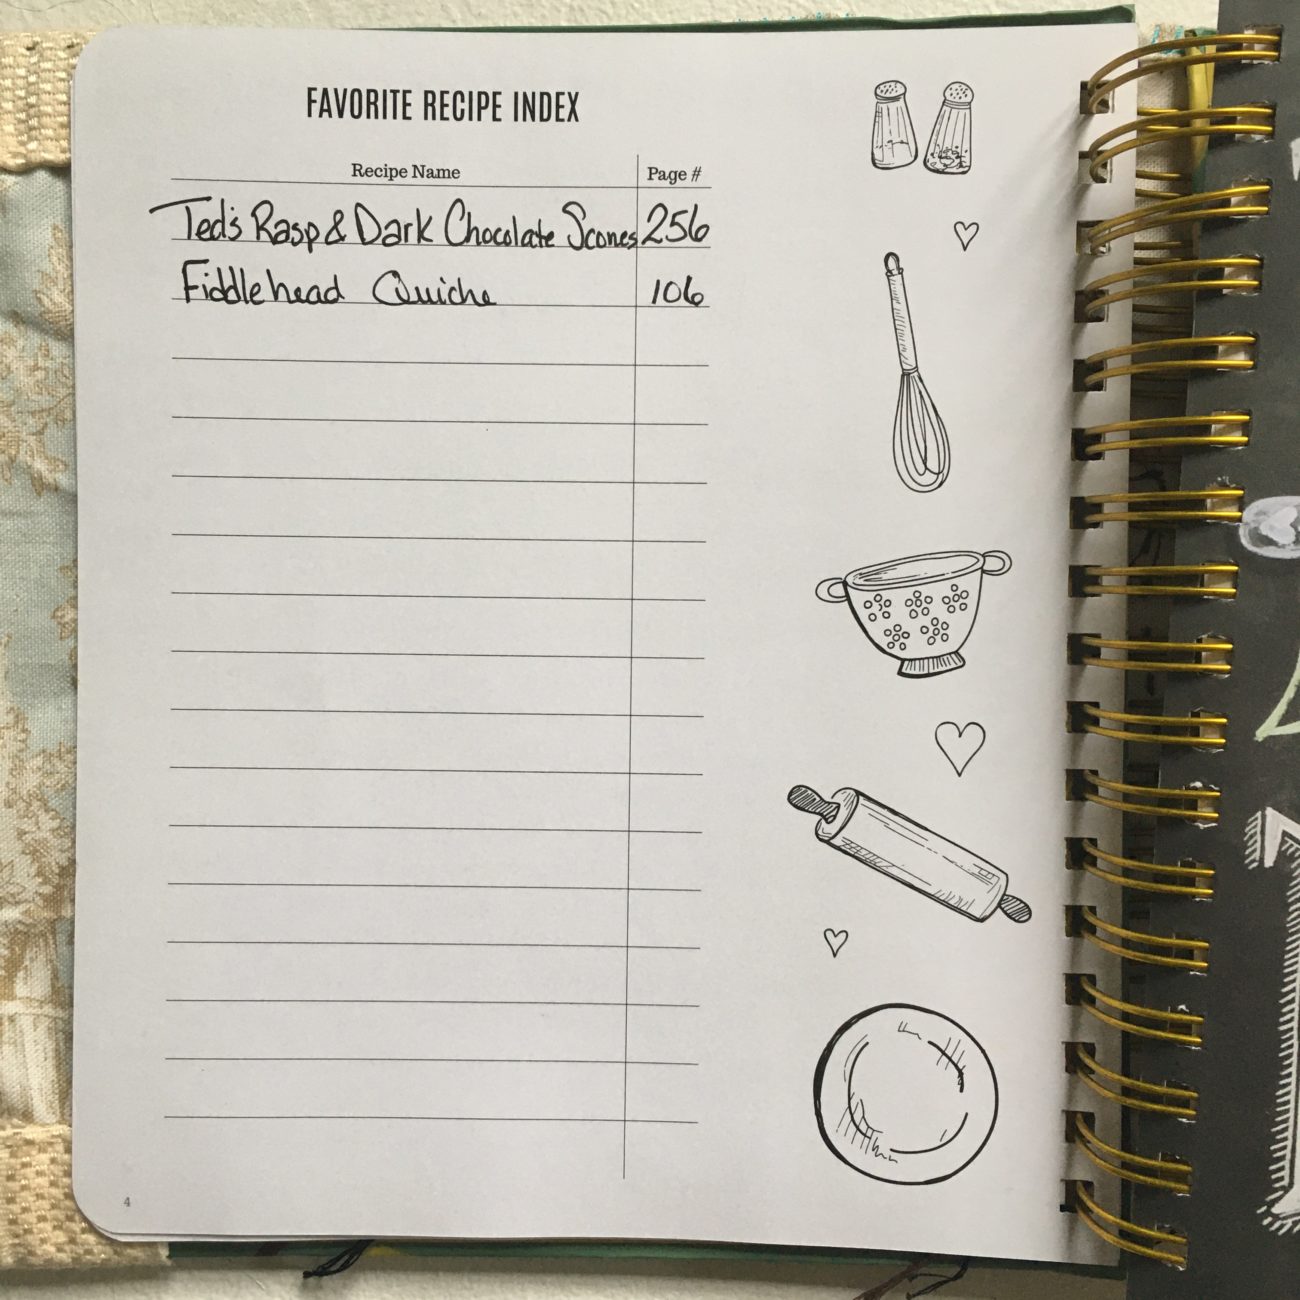 FAVORITE RECIPE INDEX
Recipe Name Page #
Ted's Rasp & Dark Chocolate Scones 256
Fiddlehead Quiche 106
4